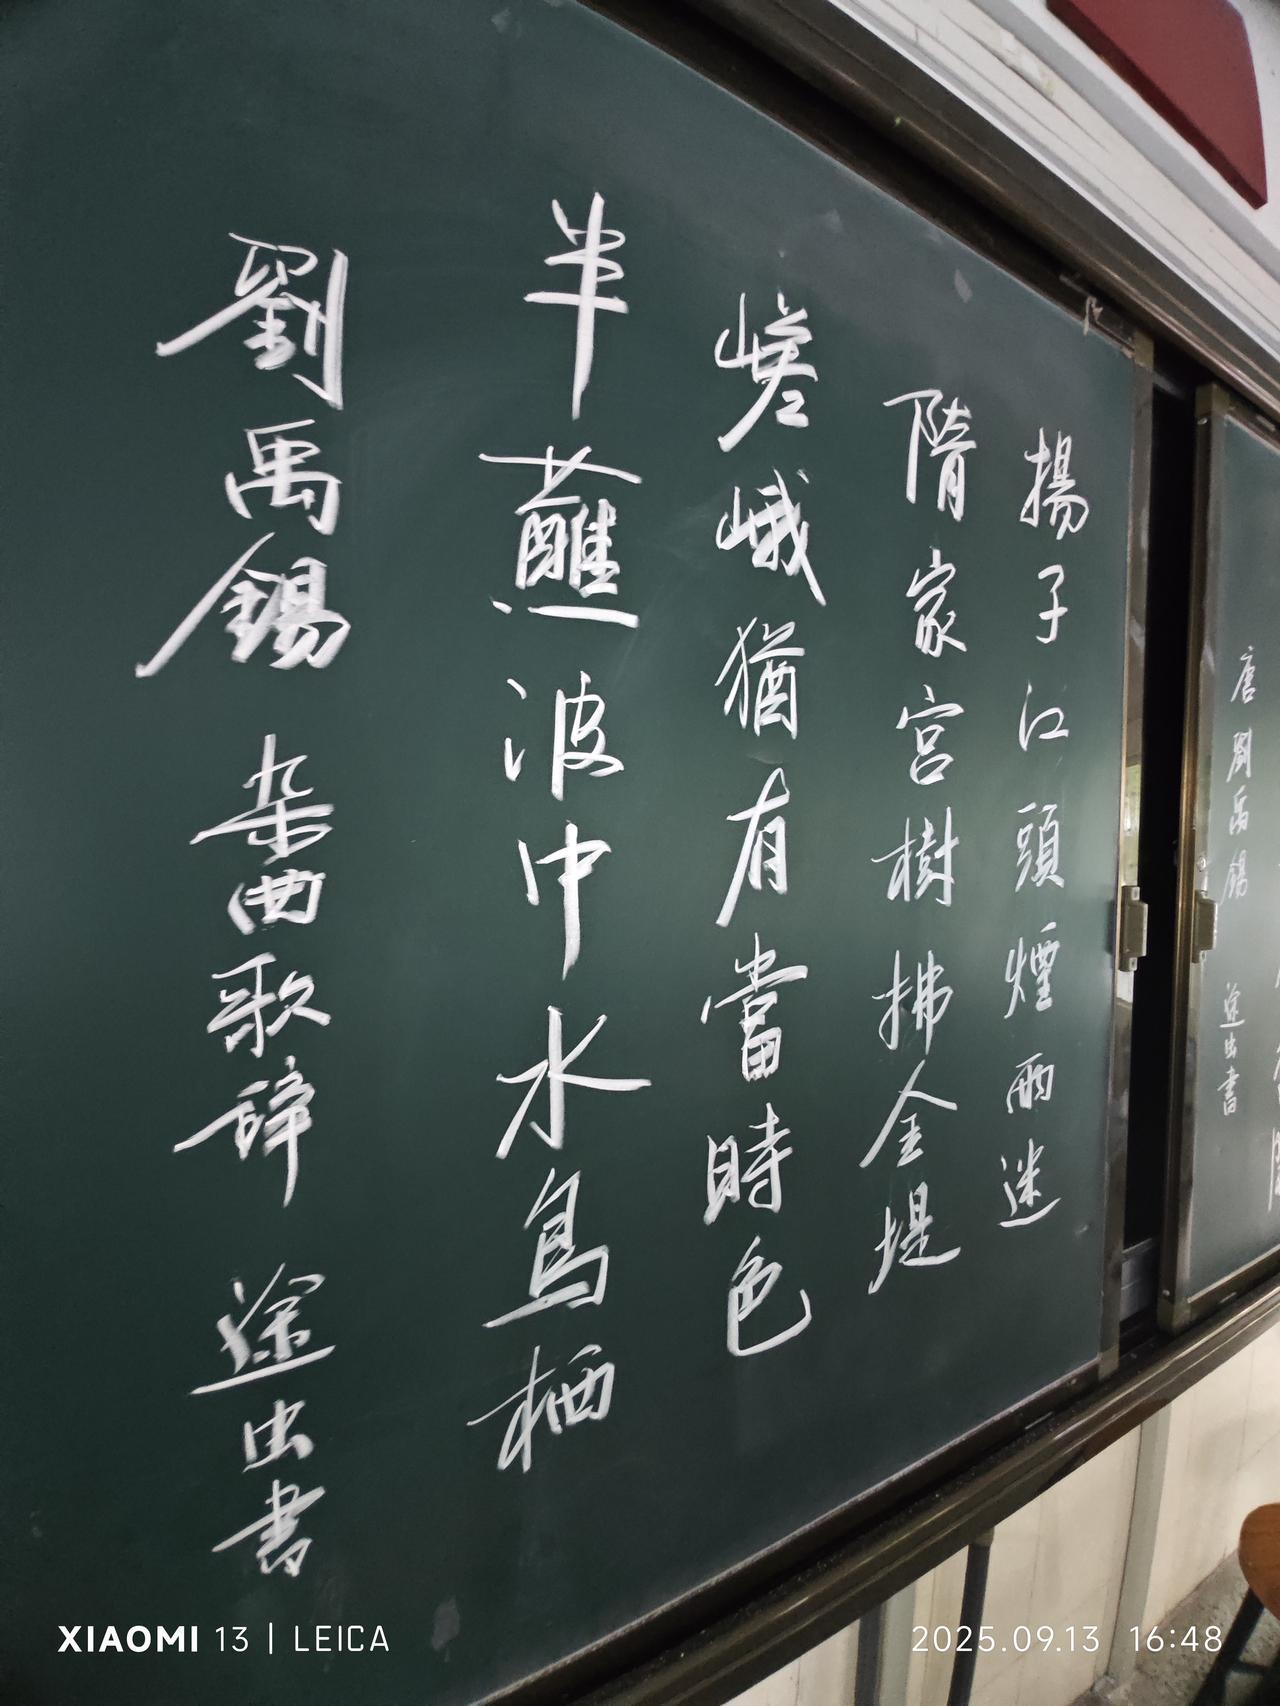 唐劉禹錫 途出書
揚子江頭煙雨迷
隋家宮樹拂金堤
嵯峨猶有當時色
半蘸波中水鳥栖
劉禹錫 杂曲歌辞 途出書
XIAOMI 13 | LEICA
2025.09.13 16:48